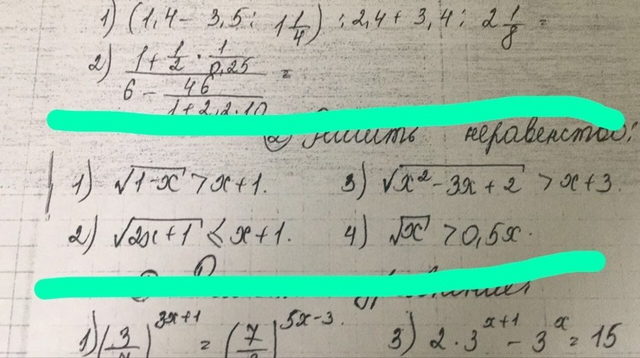 1) (1,4 - 3,5 : 1 1/4) : 2,4 + 3,4 : 2 1/8 =
2) (1 + 1/2 · 1/0,25) / (6 - 46/(1 + 2,2 · 10)) =
② Решить неравенства:
1) √(1-x) > x+1. 3) √(x² - 3x + 2) > x + 3.
2) √(2x+1) ≤ x+1. 4) √x > 0,5x.
1) (3/7)^(3x+1) = (7/3)^(5x-3). 3) 2 · 3^(x+1) - 3^x = 15